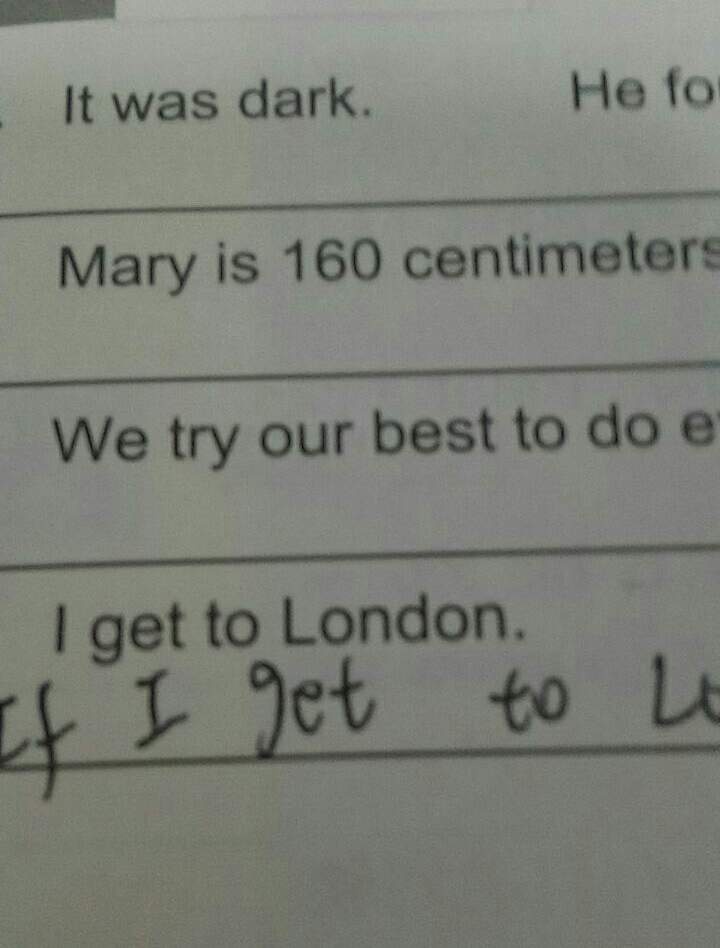 It was dark. He
Mary is 160 centimeters
We try our best to do
I get to London.
If I get to